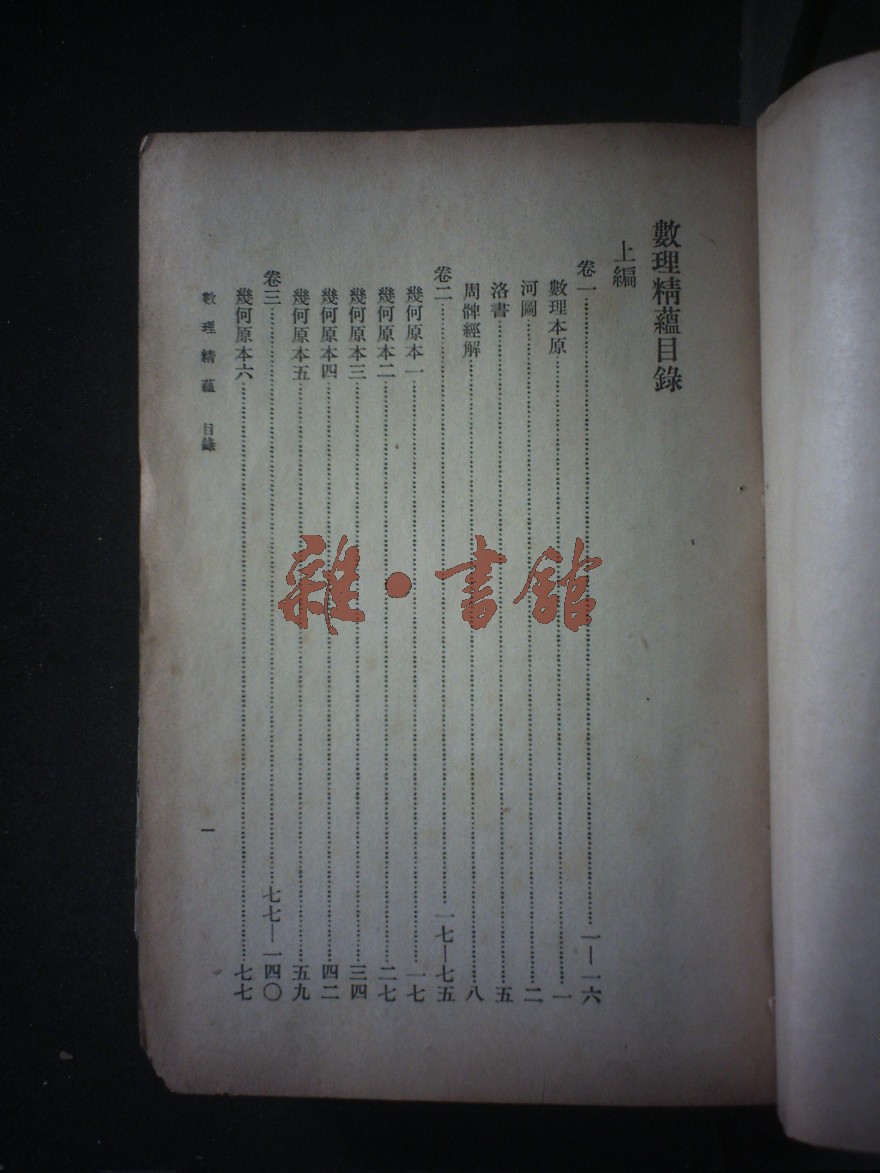 數理精蘊目錄
上編
卷一……一—一六
數理本原……一
河圖……二
洛書……五
周髀經解……八
卷二……一七—七五
幾何原本一……一七
幾何原本二……二七
幾何原本三……三四
幾何原本四……四二
幾何原本五……五九
卷三……七七—一四〇
幾何原本六……七七
數理精蘊 目錄
一
雜·書館